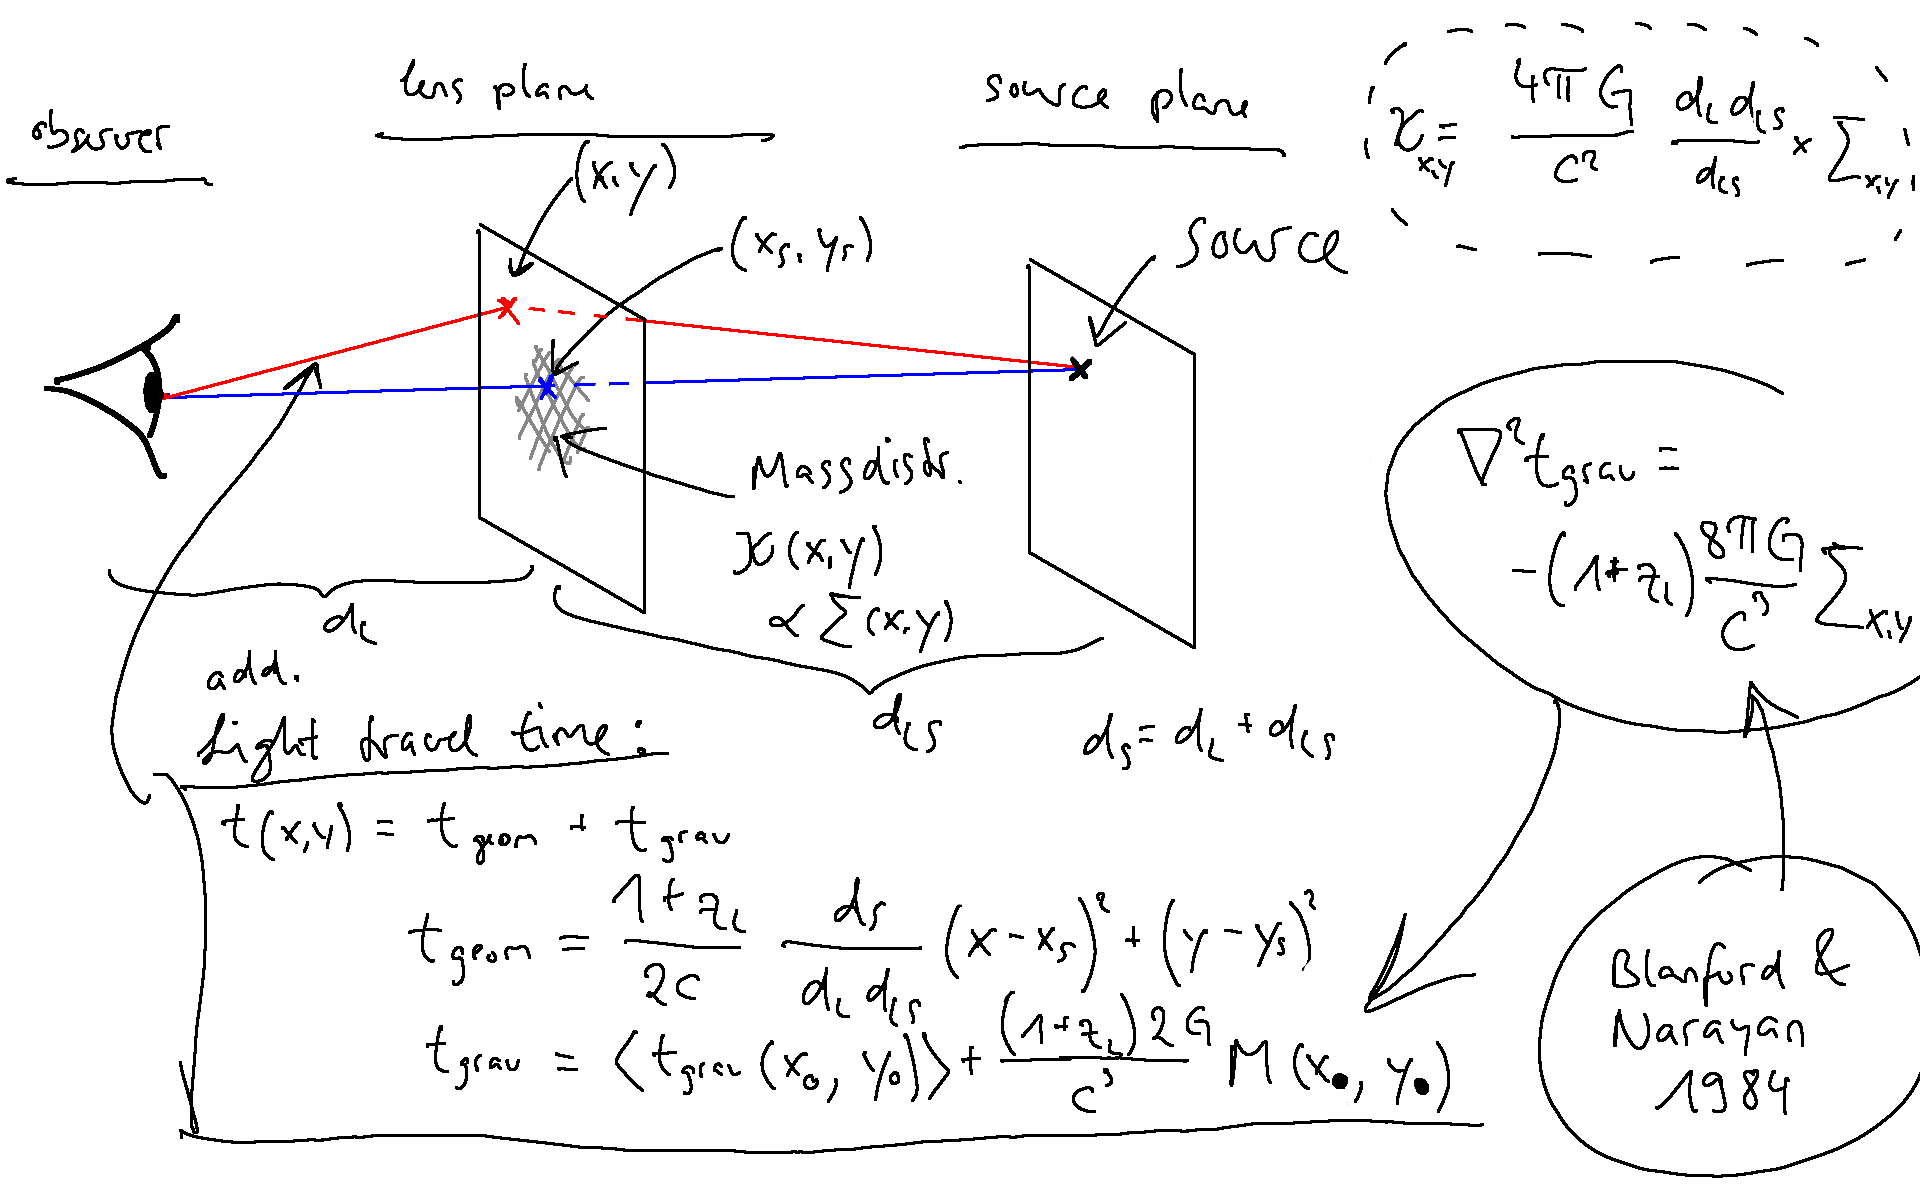 observer
lens plane
source plane
ϰ_{x,y} = 4πG/c² d_L d_LS/d_LS × Σ_{x,y}
(x,y)
(x_s, y_s)
source
Massdistr.
ϰ(x,y)
∝ Σ(x,y)
d_L
d_LS
d_s = d_L + d_LS
∇²t_grav =
-(1+z_L) 8πG/c³ Σ_{x,y}
add.
Light travel time:
t(x,y) = t_geom + t_grav
t_geom = (1+z_L)/2c d_s/(d_L d_LS) (x-x_s)² + (y-y_s)²
t_grav = ⟨t_grav(x_0, y_0)⟩ + (1+z_L)2G/c³ M(x_•, y_•)
Blanford &
Narayan
1984